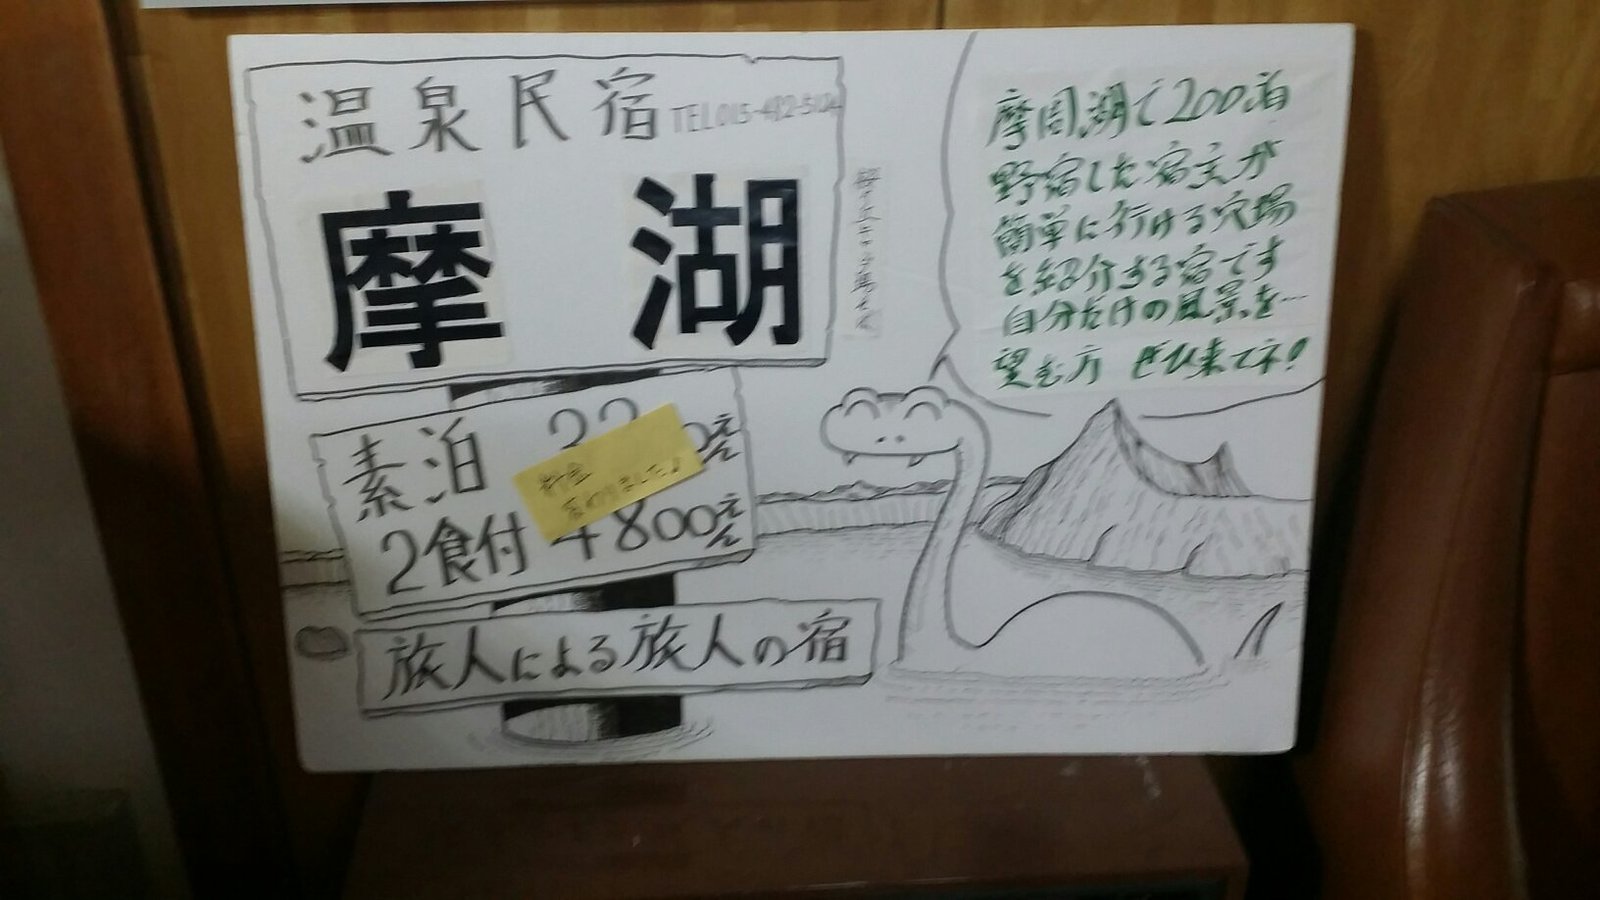 温泉民宿 TEL 015-482-5124
摩 湖
素泊
2食付 4800えん
料金
変わりました♪
旅人による旅人の宿
摩周湖で200泊
野宿した宿主が
簡単に行ける穴場
を紹介する宿です
自分だけの風景を…
望む方 ぜひ来てネ!